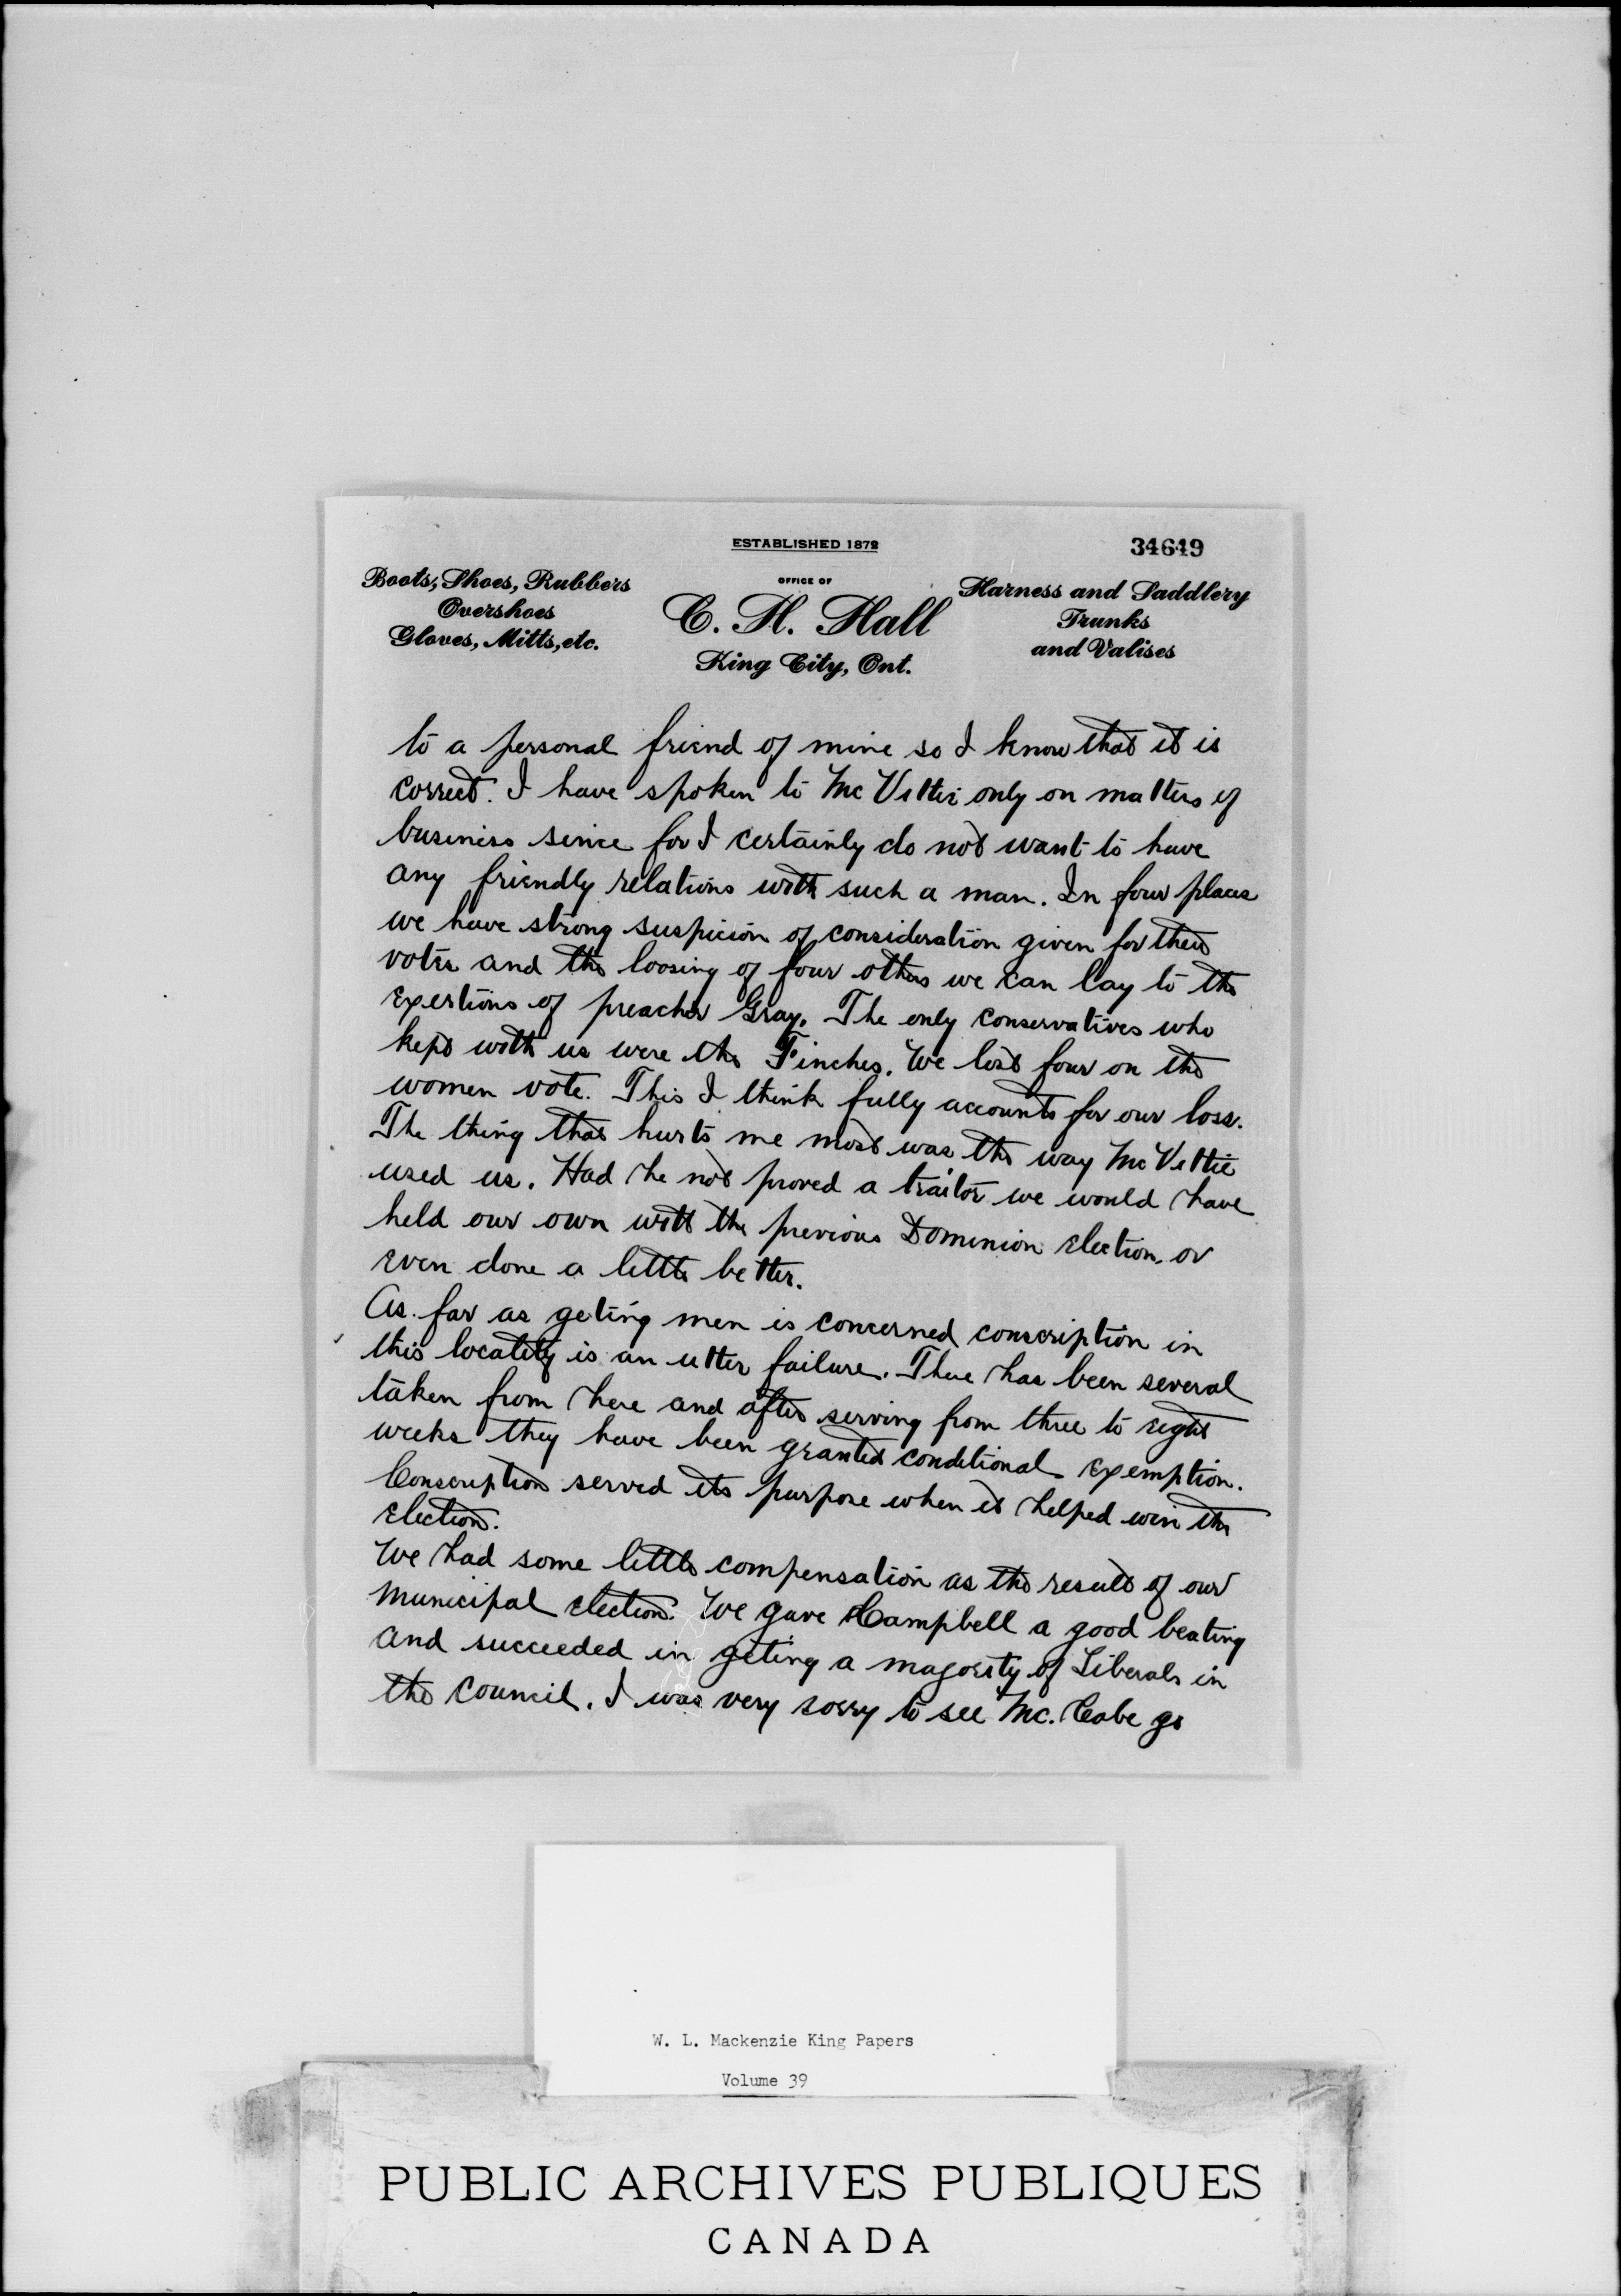 ESTABLISHED 1872
34649
Boots, Shoes, Rubbers
Overshoes
Gloves, Mitts, etc.
OFFICE OF
C. H. Hall
King City, Ont.
Harness and Saddlery
Trunks
and Valises
to a personal friend of mine so I know that it is
correct. I have spoken to Mc Vittie only on matters of
business since for I certainly do not want to have
any friendly relations with such a man. In four places
we have strong suspicion of consideration given for their
votes and the loosing of four others we can lay to the
exertions of preacher Gray. The only conservatives who
kept with us were the Finches. We lost four on the
women vote. This I think fully accounts for our loss.
The thing that hurts me most was the way Mc Vittie
used us. Had he not proved a traitor we would have
held our own with the previous Dominion election or
even done a little better.
As far as geting men is concerned conscription in
this locality is an utter failure. There has been several
taken from here and after serving from three to eight
weeks they have been granted conditional exemption.
Conscription served its purpose when it helped win the
election.
We had some little compensation as the result of our
municipal election. We gave Campbell a good beating
and succeeded in geting a majority of Liberals in
the council. I was very sorry to see Mc. Cabe go
W. L. Mackenzie King Papers
Volume 39
PUBLIC ARCHIVES PUBLIQUES
CANADA